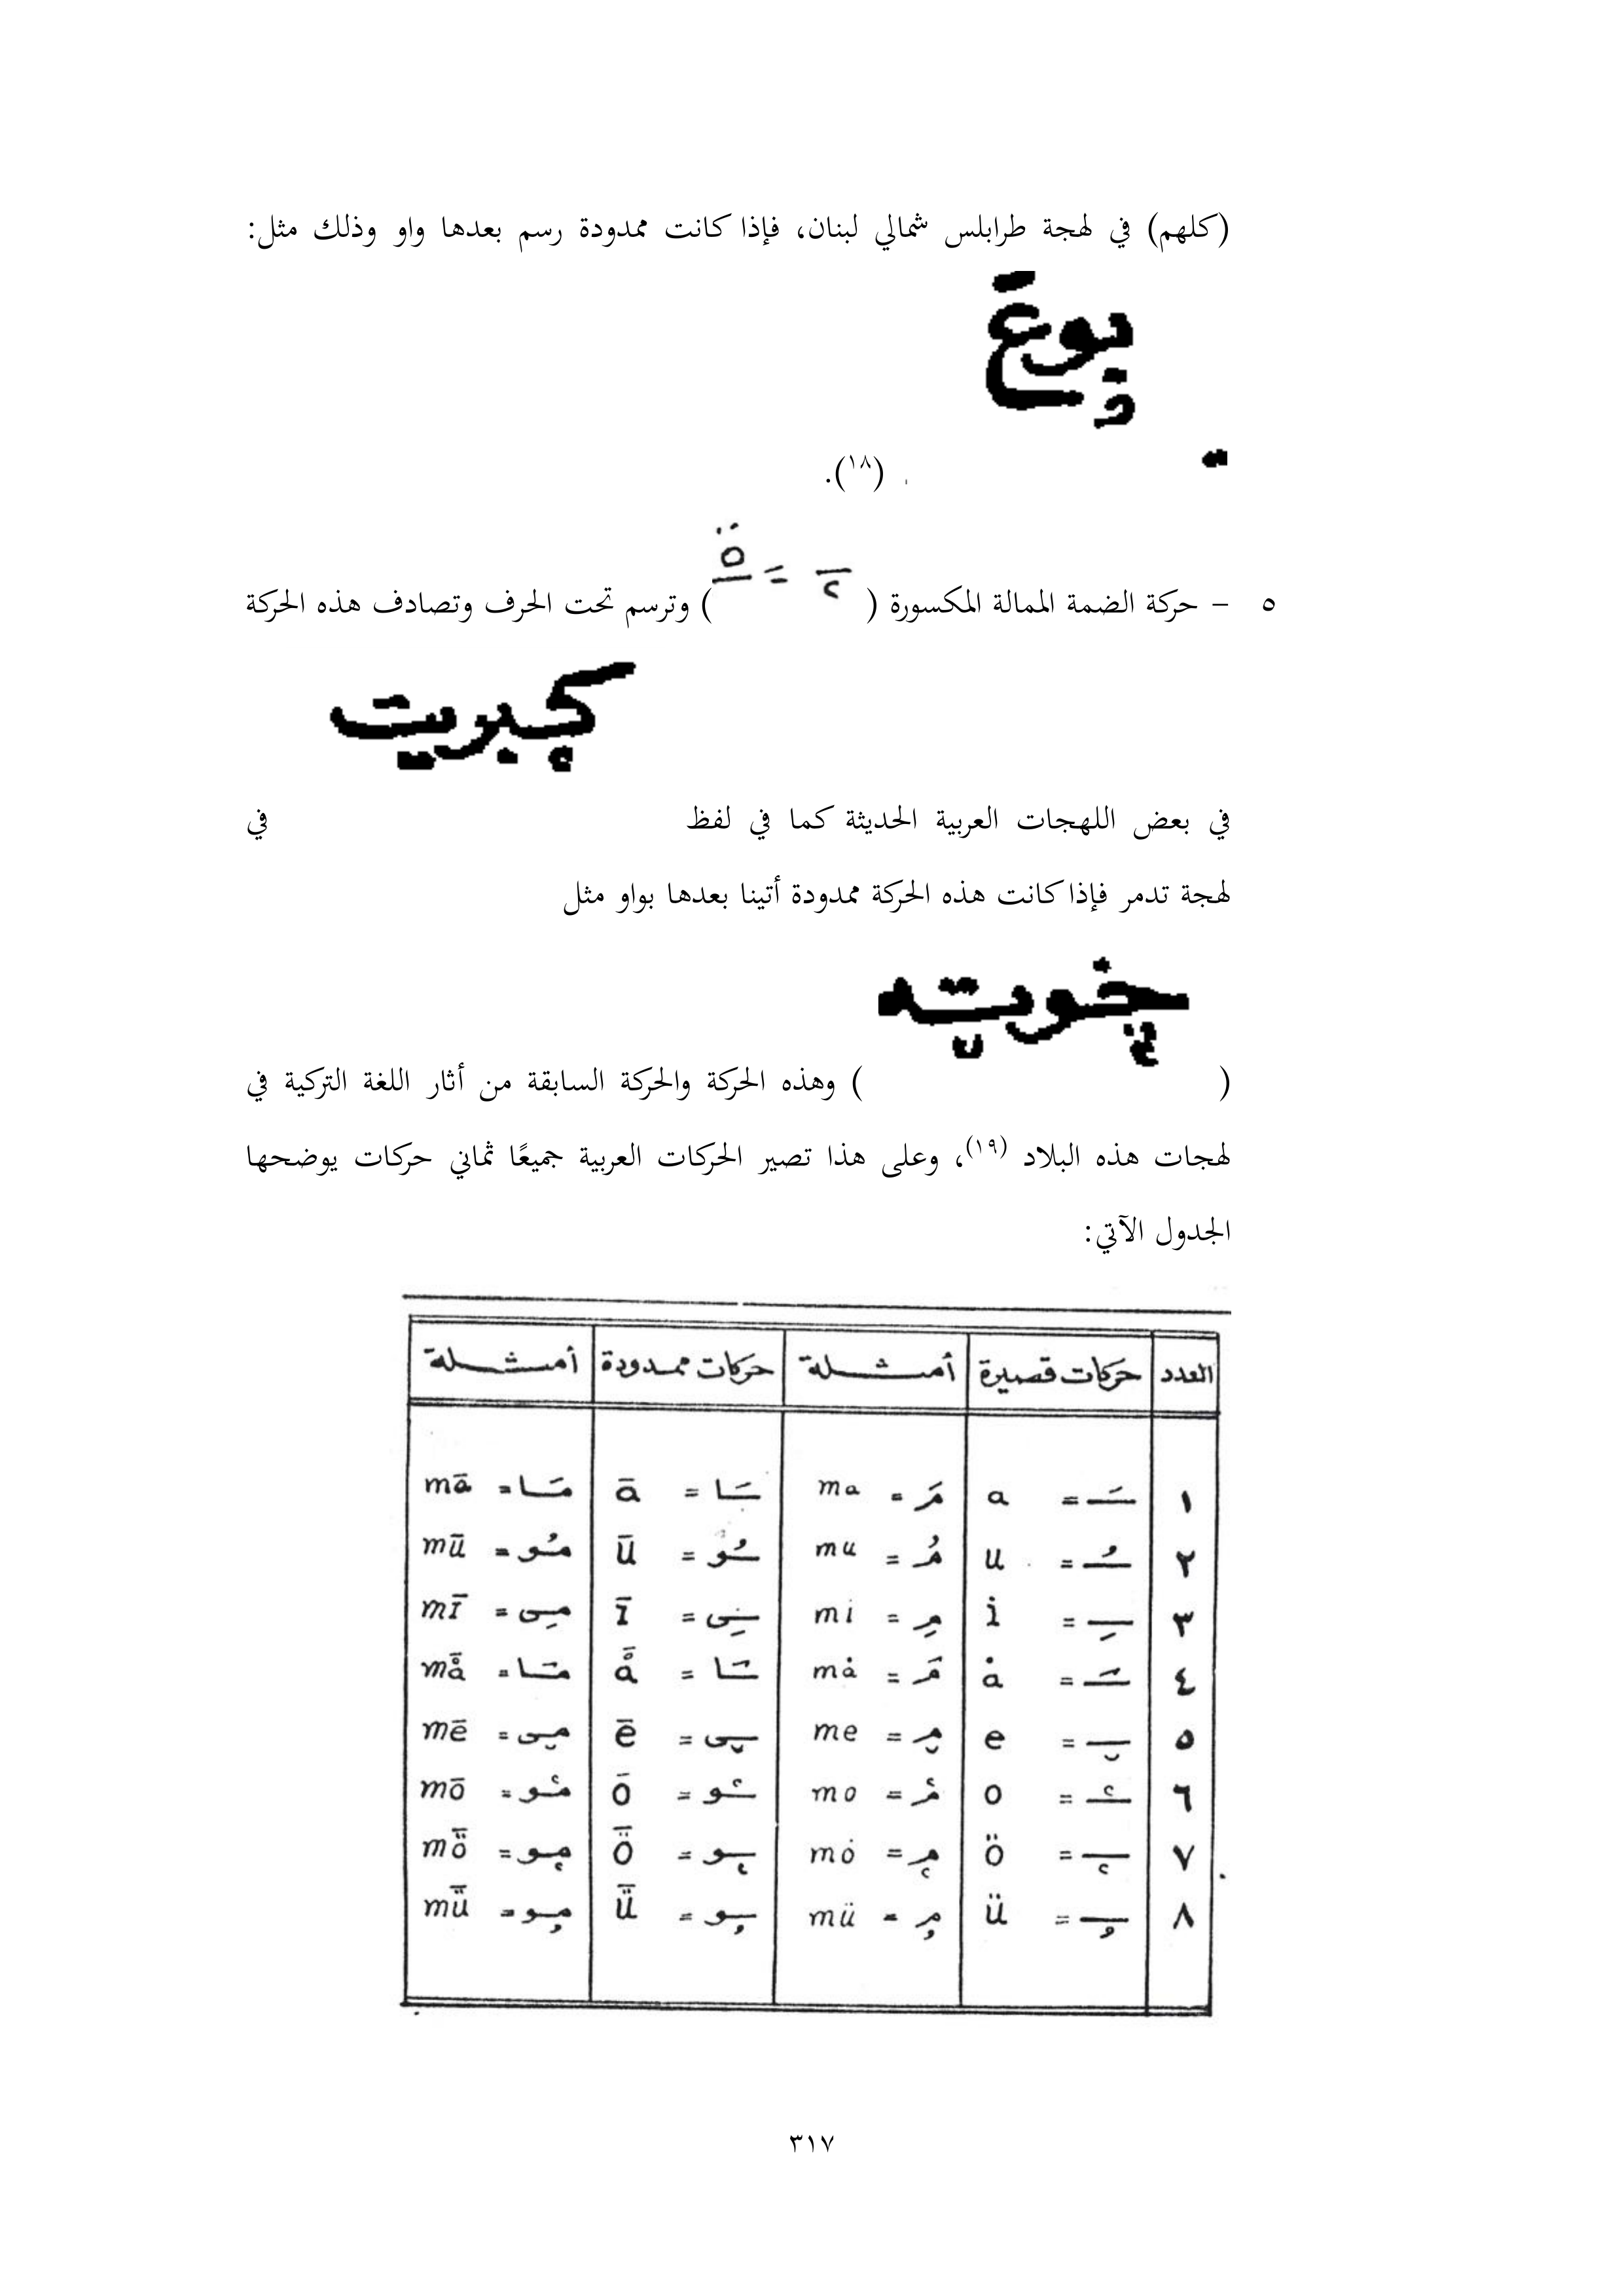 (كلهم) في لهجة طرابلس شمالي لبنان، فإذا كانت ممدودة رسم بعدها واو وذلك مثل:
(١٨).
٥ – حركة الضمة الممالة المكسورة ( = ö ) وترسم تحت الحرف وتصادف هذه الحركة
كبريت
في بعض اللهجات العربية الحديثة كما في لفظ في
لهجة تدمر فإذا كانت هذه الحركة ممدودة أتينا بعدها بواو مثل
( ) وهذه الحركة والحركة السابقة من أثار اللغة التركية في
لهجات هذه البلاد (١٩)، وعلى هذا تصير الحركات العربية جميعًا ثماني حركات يوضحها
الجدول الآتي:
العدد حركات قصيرة أمثلة حركات ممدودة أمثلة
١ ـَ = a مَ = ma ـَا = ā مَـا = mā
٢ ـُ = u مُ = mu ـُو = ū مُـو = mū
٣ ـِ = i مِ = mi ـِى = ī مِـى = mī
٤ = å = må = å̄ = må̄
٥ = e = me = ē = mē
٦ = o = mo = ō = mō
٧ = ö = mȯ = ȫ = mȫ
٨ = ü = mü = ǖ = mǖ
٣١٧